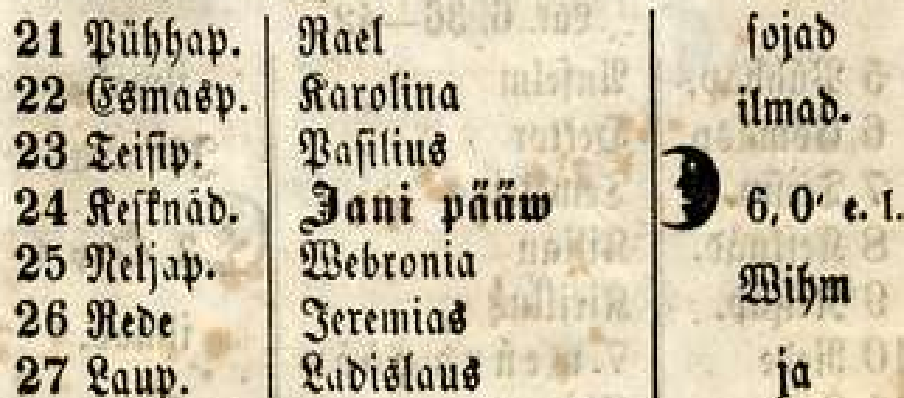 21 Pühhap. Rael sojad
22 Esmasp. Karolina ilmad.
23 Teisip. Pasilius
24 Kesknäd. Jani pääw 6,0' e. l.
25 Neljap. Webronia Wihm
26 Rede Jeremias
27 Laup. Ladislaus ja